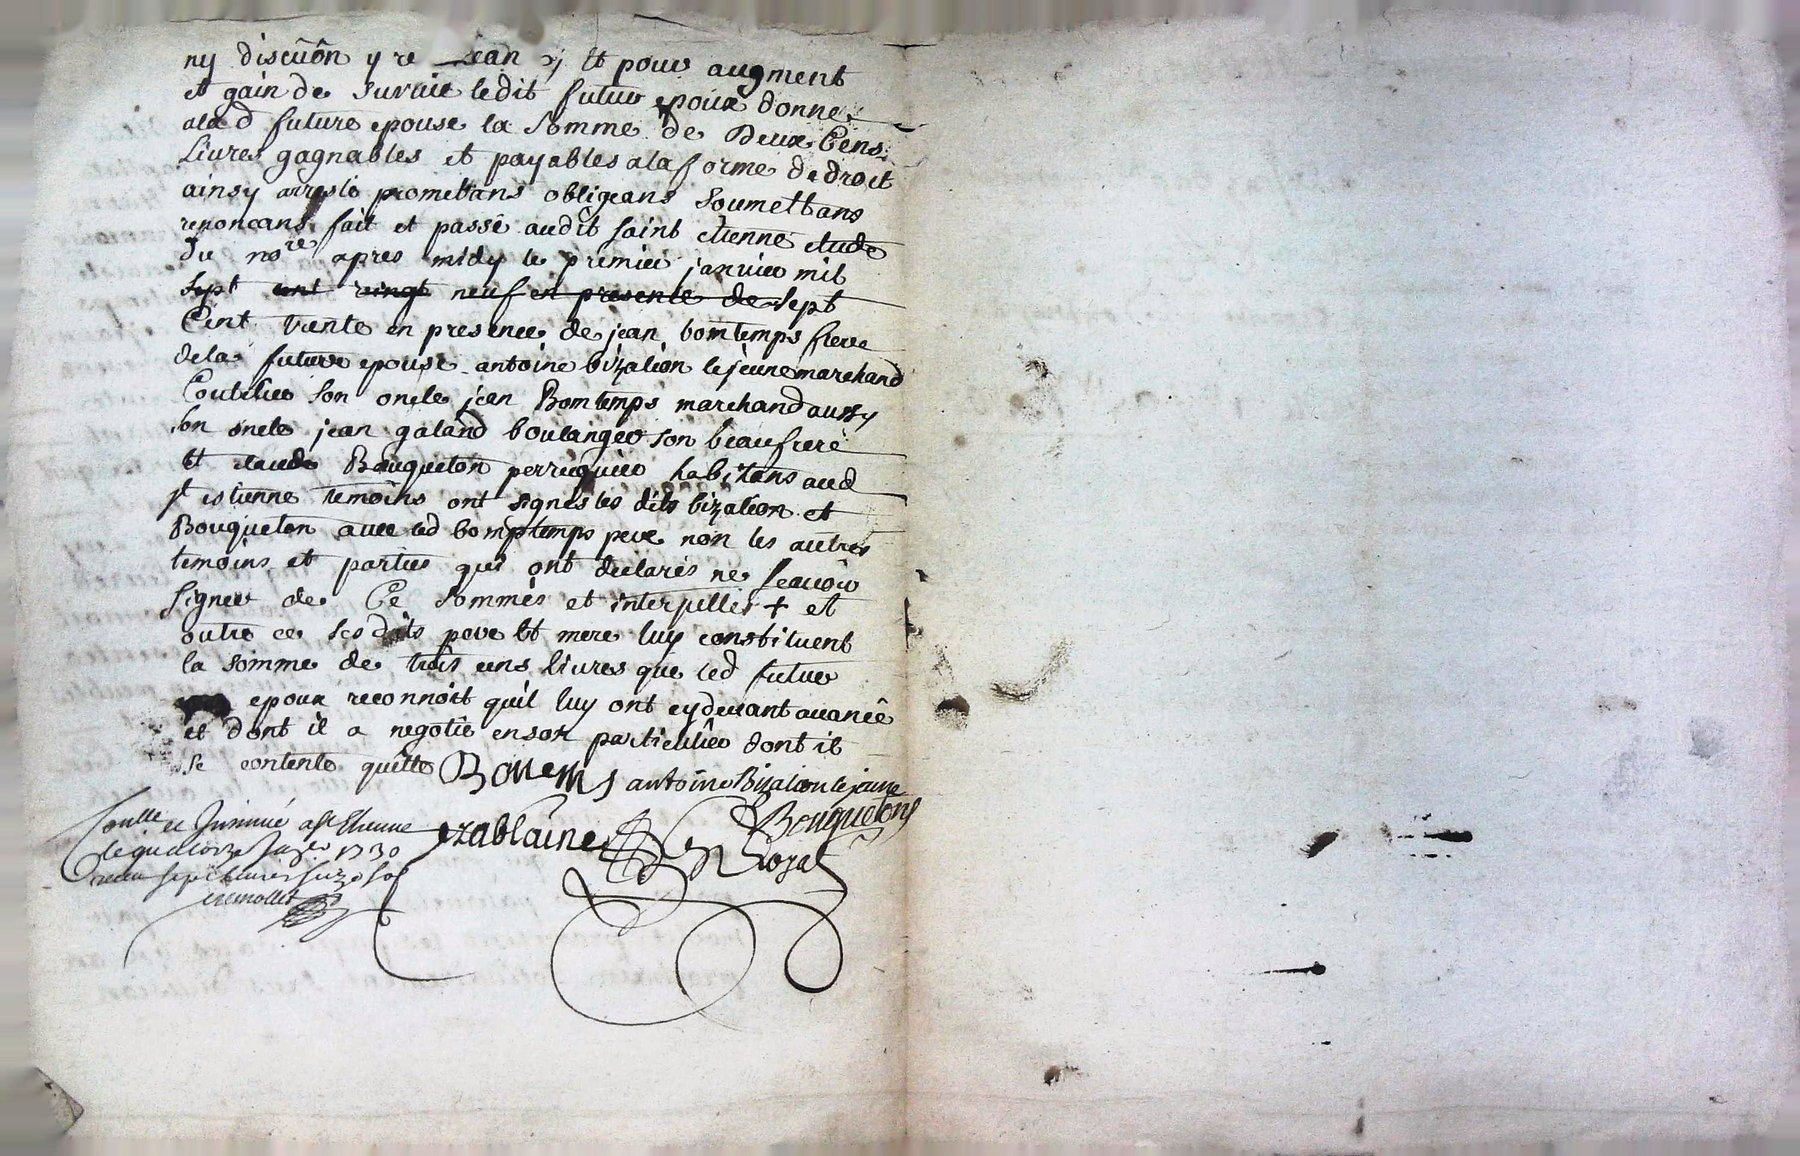 ny discuôn y re ean y Et pour augment
et gain de survie ledit futur epoux donne
alad future epouse la somme de Deux Cens
Livres gagnables et payables ala forme de droit
ainsy arresté promettans obligeans soumettans
renoncans fait et passé audit saint etienne etude
du nore apres midy le premier janvier mil
sept cent vingt neuf en presence de sept
Cent trente en presence de jean bomtemps frere
dela future epouse antoine bizalion le jeune marchand
Coutelier son oncle jean Bomtemps marchand aussy
son oncle jean galand boulanger son beaufrere
Et claude Bouqueton perruquier habitans aud
st estienne temoins ont signés les dits bizalion et
Bouqueton avec led bomptemps pere non les autres
temoins et parties qui ont declarés ne scavoir
signer de Ce sommés et interpellés + et
outre ce sesdits pere Et mere luy constituent
la somme de trois cens livres que led futur
epoux reconnoit quil luy ont cydevant avancé
et dont il a negotié enson particulier dont il
se contente quitte
antoine Bizalion le jeune
Bouqueton
ezablaine
Royal
Conlle et Insinué a St Etienne
le quatorze 1730
recu sept livres seize sols